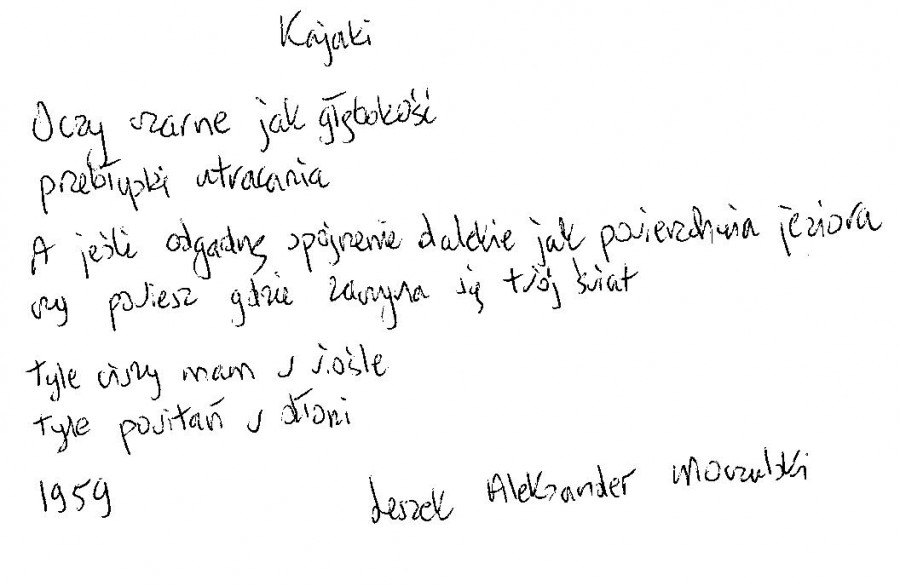 Kajaki
Oczy czarne jak głębokość
przebłyski utracania
A jeśli odgadnę spójrzenie dalekie jak powierzchnia jeziora
czy powiesz gdzie zaczyna się twój świat
tyle ciszy mam w wiośle
tyle powitań w dłoni
1959
Leszek Aleksander Moczulski